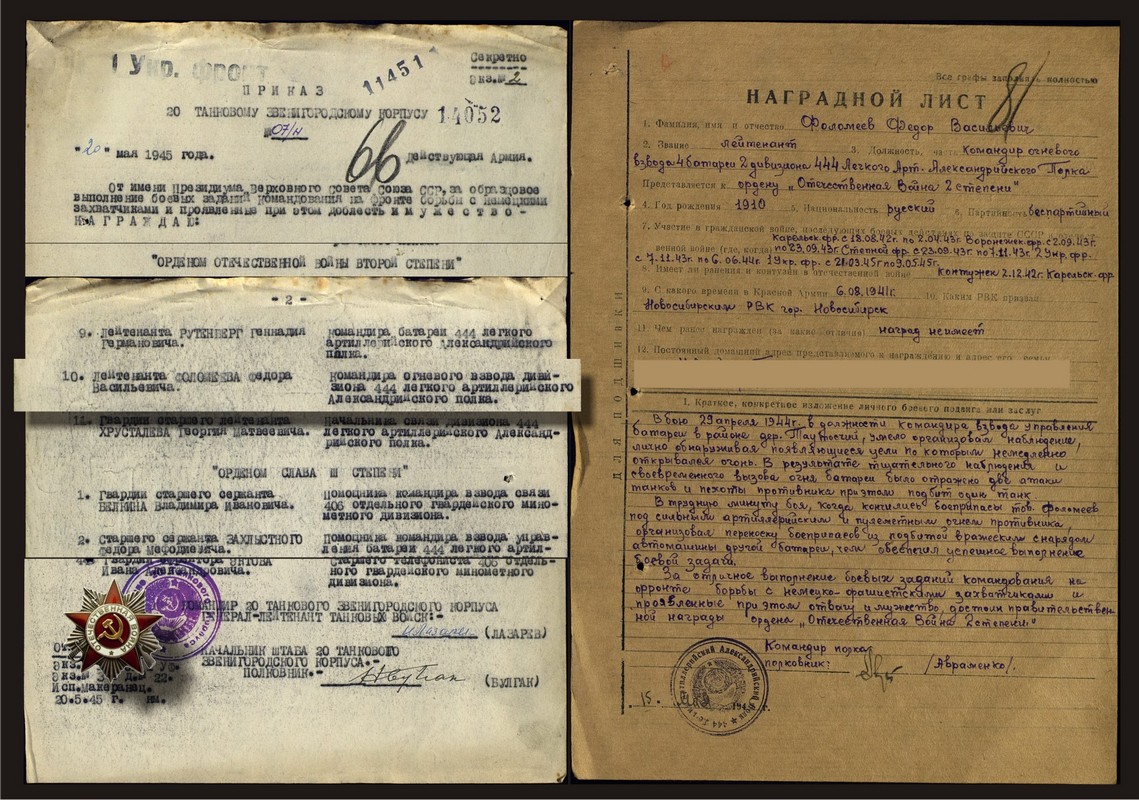 1 Укр. фронт
11451
Секретно
Экз.№ 2
ПРИКАЗ
20 ТАНКОВОМУ ЗВЕНИГОРОДСКОМУ КОРПУСУ
14052
№ 07/н
66
"20" мая 1945 года.
Действующая Армия.
От имени Президиума Верховного Совета Союза ССР, за образцовое
выполнение боевых заданий Командования на фронте борьбы с немецкими
захватчиками и проявленные при этом доблесть и мужество -
НАГРАЖДАЮ:
"ОРДЕНОМ ОТЕЧЕСТВЕННОЙ ВОЙНЫ ВТОРОЙ СТЕПЕНИ"
- 2 -
9. Лейтенанта РУТЕНБЕРГ Геннадия
Германовича.
Командира батареи 444 легкого
артиллерийского Александрийского
полка.
10. Лейтенанта ФОЛОМЕЕВА Федора
Васильевича.
Командира огневого взвода диви-
зиона 444 легкого артиллерийского
Александрийского полка.
11. Гвардии старшего лейтенанта
ХРУСТАЛЕВА Георгия Матвеевича.
Начальника связи дивизиона 444
легкого артиллерийского Александ-
рийского полка.
"ОРДЕНОМ СЛАВА Ш СТЕПЕНИ"
1. Гвардии старшего сержанта
БЕЛКИНА Владимира Ивановича.
Помощника командира взвода связи
406 отдельного гвардейского мино-
метного дивизиона.
2. Старшего сержанта ЗАХЛЫСТНОГО
Федора Мефодиевича.
Помощника командира взвода управ-
ления батареи 444 легкого артил-
Старшего телефониста 406 отдель-
ного гвардейского минометного
дивизиона.
КОМАНДИР 20 ТАНКОВОГО ЗВЕНИГОРОДСКОГО КОРПУСА
ГЕНЕРАЛ-ЛЕЙТЕНАНТ ТАНКОВЫХ ВОЙСК:
(ЛАЗАРЕВ)
НАЧАЛЬНИК ШТАБА 20 ТАНКОВОГО
ЗВЕНИГОРОДСКОГО КОРПУСА.-
ПОЛКОВНИК.-
(БУЛГАК)
Исп.Макеранец.
20.5.45 г.
ОТЕЧЕСТВЕННАЯ ВОЙНА
Все графы заполнять полностью
НАГРАДНОЙ ЛИСТ
81
1. Фамилия, имя и отчество Фоломеев Федор Васильевич
2. Звание лейтенант 3. Должность, часть Командир огневого
взвода 4 батареи 2 дивизиона 444 Легкого Арт. Александрийского Полка
Представляется к ордену „Отечественная Война 2 степени"
4. Год рождения 1910 5. Национальность русский 6. Партийность беспартийный
7. Участие в гражданской войне, последующих боевых действиях по защите СССР и
Карельск.фр. с 18.08.42г. по 2.04.43г. Воронежк.фр. с 2.09.43г.
венной войне (где, когда) по 23.09.43г. Степной фр. с 23.09.43г по 7.11.43г 2 Укр. фр.
с 7.11.43г по 6.06.44г 1 Укр. фр. с 21.03.45г по 9.05.45г.
8. Имеет ли ранения и контузии в отечественной войне контужен 2.12.42г. Карельск. фр
9. С какого времени в Красной Армии 6.08.1941г. 10. Каким РВК призван
Новосибирским РВК гор. Новосибирск
11. Чем ранее награжден (за какие отличия) наград неимеет
12. Постоянный домашний адрес представляемого к награждению и адрес его семьи
ДЛЯ ПОДШИВКИ
I. Краткое, конкретное изложение личного боевого подвига или заслуг
В бою 29 апреля 1944г. в должности командира взвода управления
батареи в районе дер. умело организовал наблюдение,
лично обнаруживая появляющиеся цели по которым немедленно
открывался огонь. В результате тщательного наблюдения и
своевременного вызова огня батареи было отражно две атаки
танков и пехоты противника при этом подбит один танк.
В трудную минуту боя, когда кончились боеприпасы тов. Фоломеев
под сильным артиллерийским и пулеметным огнем противника,
организовал переноску боеприпасов из подбитой вражеским снарядом
автомашины другой батареи, чем обеспечил успешное выполнение
боевой задачи.
За отличное выполнение боевых заданий командования на
фронте борьбы с немецко-фашистскими захватчиками и
проявленные при этом отвагу и мужество, достоин правительствен
ной награды ордена „Отечественная Война 2 степени"
Командир полка
полковник: /Авраменко/.
15.